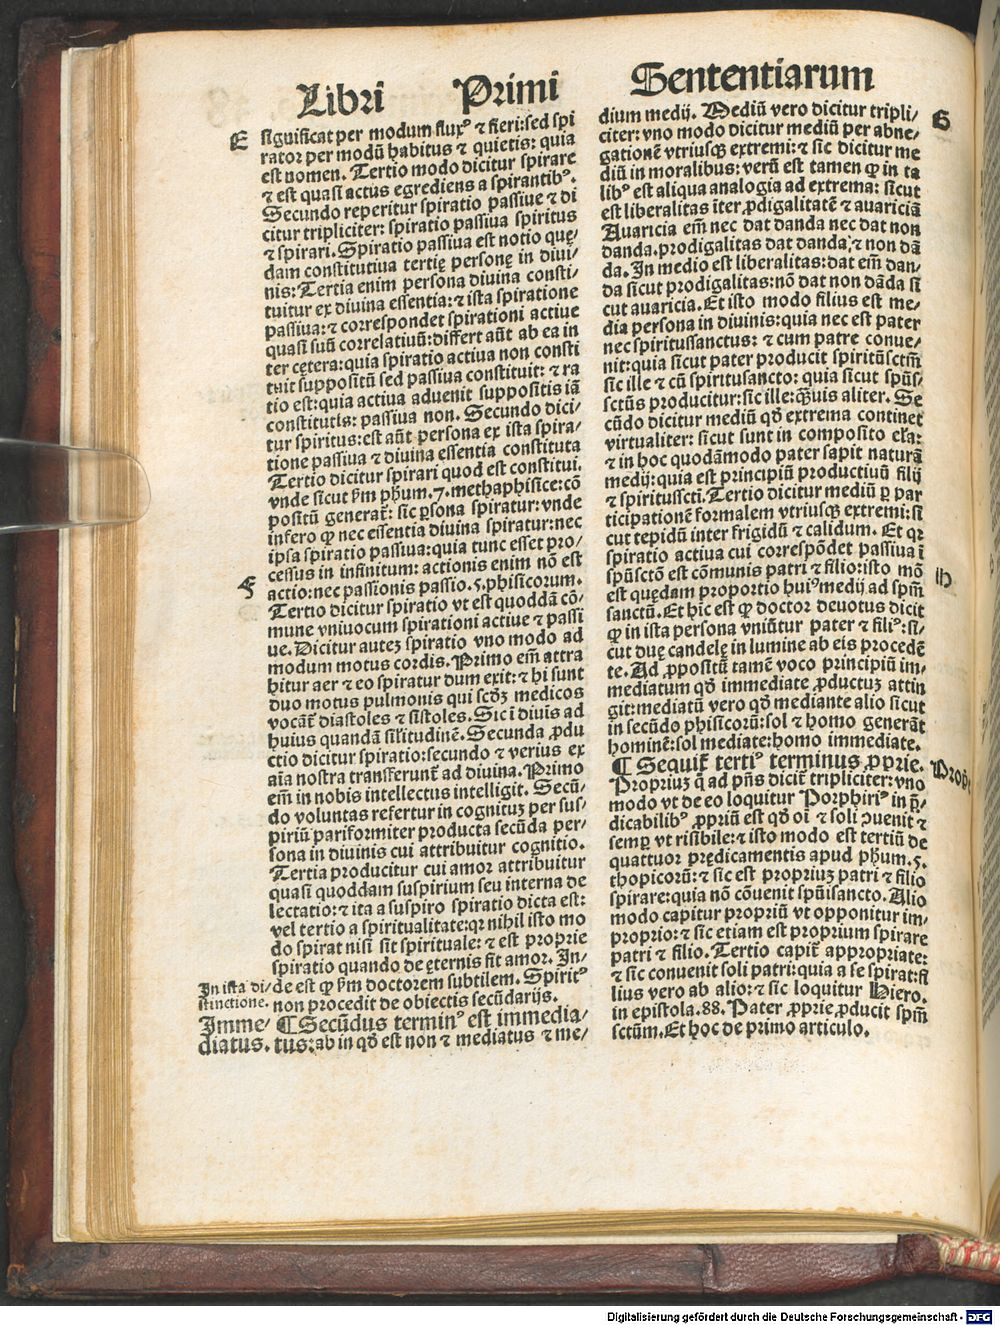 Libri Primi Sententiarum
E
significat per modum fluxꝰ ⁊ fieri: sed spi
rator per modū habitus ⁊ quietis: quia
est nomen. Tertio modo dicitur spirare
⁊ est quasi actus egrediens a spirantibꝰ.
Secundo reperitur spiratio passiue ⁊ di
citur tripliciter: spiratio passiua spiritus
⁊ spirari. Spiratio passiua est notio quę⸗
dam constitutiua tertię personę in diui⸗
nis: Tertia enim persona diuina consti⸗
tuitur ex diuina essentia: ⁊ ista spiratione
passiua: ⁊ correspondet spirationi actiue
quasi suū correlatiuū: differt aūt ab ea in
ter cętera: quia spiratio actiua non consti
tuit suppositū sed passiua constituit: ⁊ ra
tio est: quia actiua aduenit suppositis iā
constitutis: passiua non. Secundo dici⸗
tur spiritus: est aūt persona ex ista spira⸗
tione passiua ⁊ diuina essentia constituta
Tertio dicitur spirari quod est constitui.
vnde sicut ẜm pħum .7. methaphisice: cō
positū generat̄: sic ꝑsona spiratur: vnde
infero ꝙ nec essentia diuina spiratur: nec
ipsa spiratio passiua: quia tunc esset pro⸗
cessus in infinitum: actionis enim nō est
F
actio: nec passionis passio. 5. phisicorum.
Tertio dicitur spiratio vt est quoddā cō⸗
mune vniuocum spirationi actiue ⁊ passi
ue. Dicitur autez spiratio vno modo ad
modum motus cordis. Primo em̄ attra
hitur aer ⁊ eo spiratur dum exit: ⁊ hi sunt
duo motus pulmonis qui scd̄z medicos
vocāt̄ diastoles ⁊ sistoles. Sic ī diuīs ad
huius quandā sil̄itudinē. Secunda ꝓdu
ctio dicitur spiratio: secundo ⁊ verius ex
aīa nostra transferunt̄ ad diuina. Primo
em̄ in nobis intellectus intelligit. Secū⸗
do voluntas refertur in cognituꝫ per sus⸗
piriū pariformiter producta secūda per⸗
sona in diuinis cui attribuitur cognitio.
Tertia producitur cui amor attribuitur
quasi quoddam suspirium seu interna de
lectatio: ⁊ ita a suspiro spiratio dicta est:
vel tertio a spiritualitate: qꝛ nihil isto mo
do spirat nisi sit spirituale: ⁊ est proprie
spiratio quando de ęternis fit amor. In⸗
In ista di⸗
stinctione.
de est ꝙ ẜm doctorem subtilem. Spiritꝰ
non procedit de obiectis secūdarijs.
Imme⸗
diatus.
¶ Secūdus terminꝰ est immedia⸗
tus: ab in qd̄ est non ⁊ mediatus ⁊ me⸗
dium medij. Mediū vero dicitur tripli⸗
G
citer: vno modo dicitur mediū per abne⸗
gationē vtriusqꝫ extremi: ⁊ sic dicitur me
diū in moralibus: verū est tamen ꝙ in ta
libꝰ est aliqua analogia ad extrema: sicut
est liberalitas īter ꝓdigalitatē ⁊ auariciā
Auaricia em̄ nec dat danda nec dat non
danda. prodigalitas dat danda, ⁊ non dā
da. In medio est liberalitas: dat em̄ dan⸗
da sicut prodigalitas: nō dat non dāda si
cut auaricia. Et isto modo filius est me⸗
dia persona in diuinis: quia nec est pater
nec spiritussanctus: ⁊ cum patre conue⸗
nit: quia sicut pater producit spiritūsctm̄
sic ille ⁊ cū spiritusancto: quia sicut spūs⸗
sctūs producitur: sic ille: qꝫuis aliter. Se
cūdo dicitur mediū qd̄ extrema continet
virtualiter: sicut sunt in composito el̄a:
⁊ in hoc quodāmodo pater sapit naturā
medij: quia est principiū productiuū filij
⁊ spiritusscti. Tertio dicitur mediū ꝑ par
ticipationē formalem vtriusqꝫ extremi: si
cut tepidū inter frigidū ⁊ calidum. Et qꝛ
spiratio actiua cui correspōdet passiua ī
spūsctō est cōmunis patri ⁊ filio: isto mō
H
est quędam proportio huiꝰ medij ad spm̄
sanctū. Et hic est ꝙ doctor deuotus dicit
ꝙ in ista persona vniūtur pater ⁊ filiꝰ: si⸗
cut duę candelę in lumine ab eis procedē
te. Ad ꝓpositū tamē voco principiū im⸗
mediatum qd̄ immediate ꝓductuꝫ attin
git: mediatū vero qd̄ mediante alio sicut
in secūdo phisicorū: sol ⁊ homo generāt
hominē: sol mediate: homo immediate.
¶ Sequit̄ tertiꝰ terminus ꝓprie.
Propꝛiꝰ
Propriuꝫ q̄ ad pn̄s dicit̄ tripliciter: vno
modo vt de eo loquitur Porphiriꝰ in p̄⸗
dicabilibꝰ ꝓpriū est qd̄ oī ⁊ soli ɔuenit ⁊
semꝑ vt risibile: ⁊ isto modo est tertiū de
quattuor prędicamentis apud pħum. 5.
thopicorū: ⁊ sic est propriuꝫ patri ⁊ filio
spirare: quia nō cōuenit spūisancto. Alio
modo capitur propriū vt opponitur im⸗
proprio: ⁊ sic etiam est proprium spirare
patri ⁊ filio. Tertio capit̄ appropriate:
⁊ sic conuenit soli patri: quia a se spirat: fi
lius vero ab alio: ⁊ sic loquitur Hiero.
in epistola. 88. Pater ꝓprie ꝓducit spm̄
sctūm. Et hoc de primo articulo.
Digitalisierung gefördert durch die Deutsche Forschungsgemeinschaft - DFG